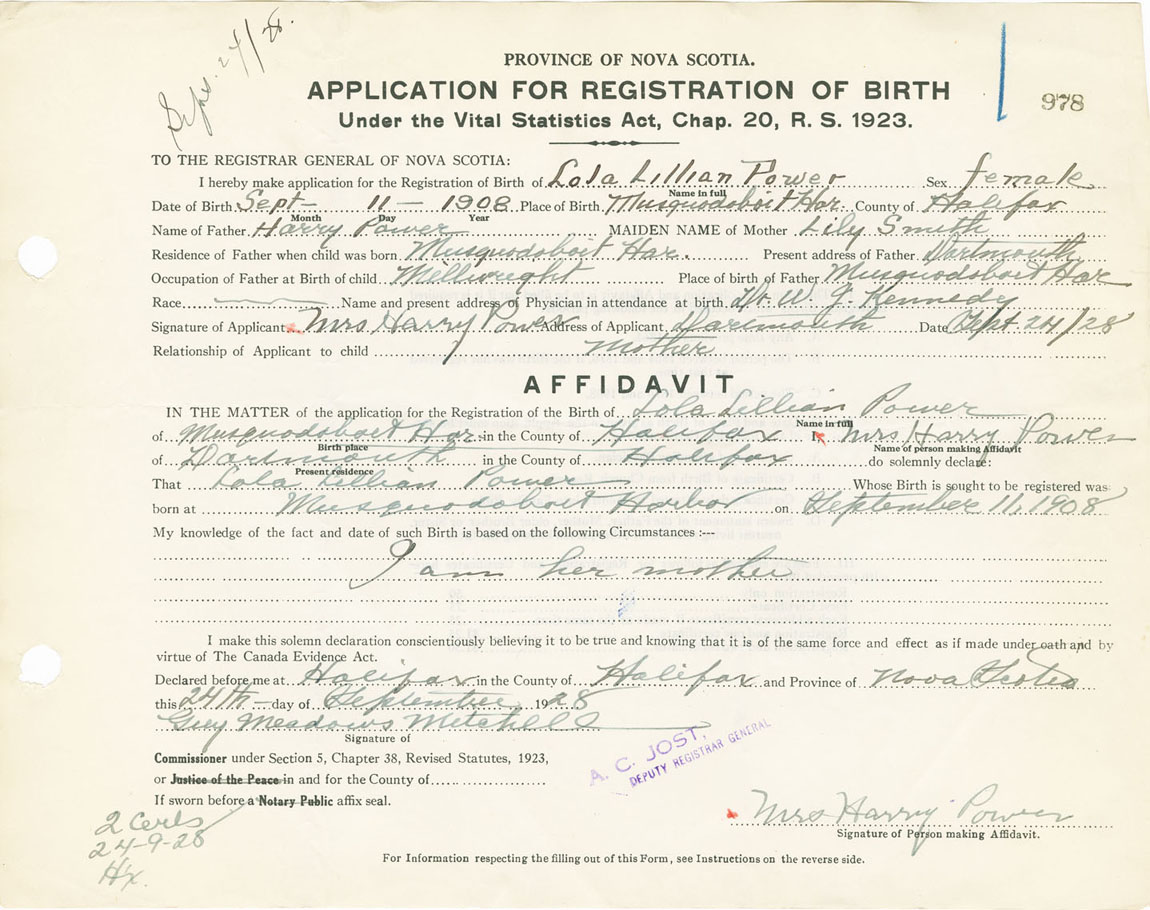 Sept. 24/28.
PROVINCE OF NOVA SCOTIA.
978
APPLICATION FOR REGISTRATION OF BIRTH
Under the Vital Statistics Act, Chap. 20, R. S. 1923.
TO THE REGISTRAR GENERAL OF NOVA SCOTIA:
I hereby make application for the Registration of Birth of Lola Lillian Power Sex female
Name in full
Date of Birth Sept- 11 - 1908 Place of Birth Musquodoboit Har. County of Halifax
Month Day Year
Name of Father Harry Power MAIDEN NAME of Mother Lily Smith
Residence of Father when child was born Musquodoboit Har. Present address of Father Dartmouth
Occupation of Father at Birth of child Millwright Place of birth of Father Musquodoboit Har
Race Name and present address of Physician in attendance at birth Dr. W. J. Kennedy
Signature of Applicant Mrs Harry Power Address of Applicant Dartmouth Date Sept 24/28
Relationship of Applicant to child mother
AFFIDAVIT
IN THE MATTER of the application for the Registration of the Birth of Lola Lillian Power
Name in full
of Musquodoboit Har in the County of Halifax I, Mrs Harry Power
Birth place Name of person making Affidavit
of Dartmouth in the County of Halifax do solemnly declare:
Present residence
That Lola Lillian Power Whose Birth is sought to be registered was
born at Musquodoboit Harbor on September 11, 1908
My knowledge of the fact and date of such Birth is based on the following Circumstances :---
I am her mother
I make this solemn declaration conscientiously believing it to be true and knowing that it is of the same force and effect as if made under oath and by
virtue of The Canada Evidence Act.
Declared before me at Halifax in the County of Halifax and Province of Nova Scotia
this 24th day of September, 1928
Guy Meadows Mitchell
Signature of
A. C. JOST,
DEPUTY REGISTRAR GENERAL
Commissioner under Section 5, Chapter 38, Revised Statutes, 1923,
or Justice of the Peace in and for the County of
If sworn before a Notary Public affix seal.
Mrs Harry Power
Signature of Person making Affidavit.
2 Certs
24-9-28
Hx.
For Information respecting the filling out of this Form, see Instructions on the reverse side.